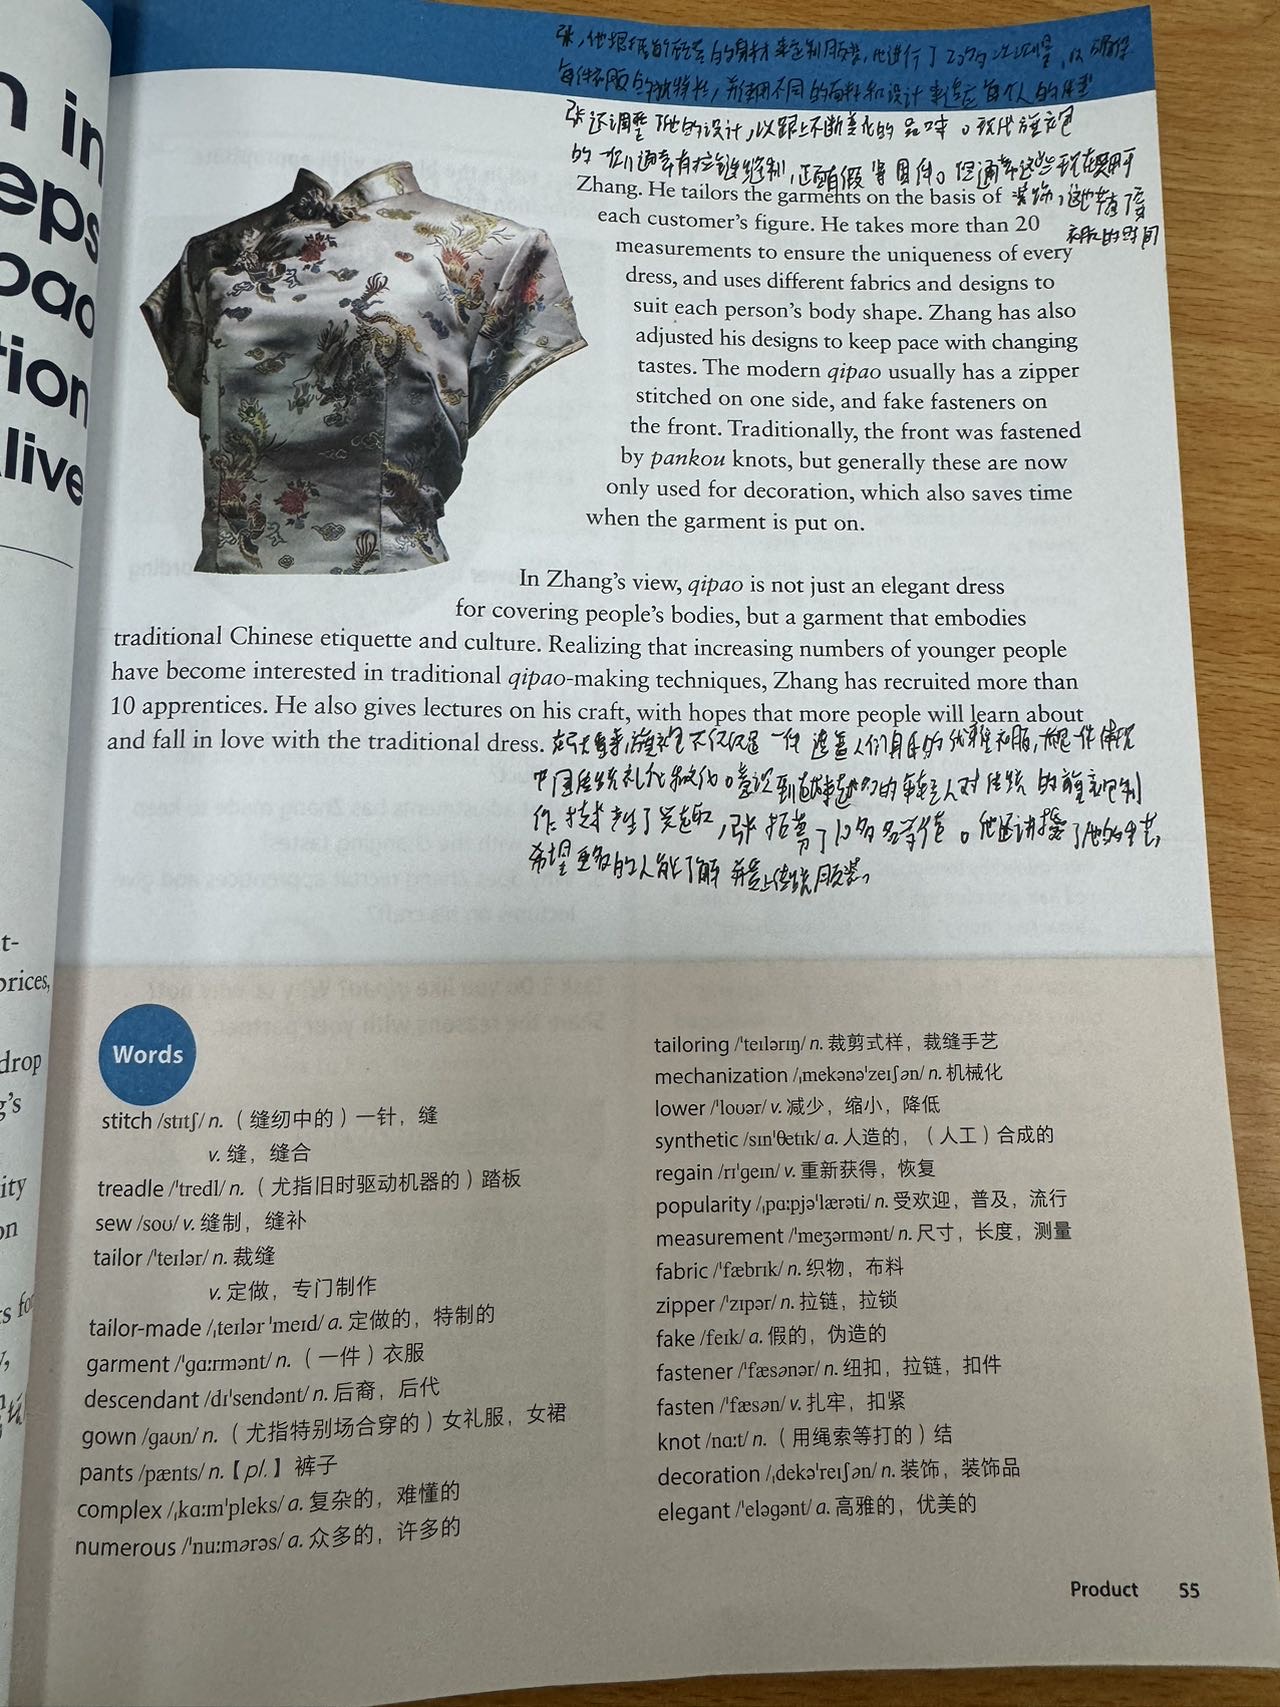 n in
eps
oao
tion
live
t-
prices,
drop
g's
ity
on
s fo
张,他根据每个顾客的身材来定制服装,他进行了20多次测量,以确保
每件衣服的独特性,并使用不同的面料和设计来适应每个人的体型
张还调整了他的设计,以跟上不断变化的品味。现代旗袍
的一侧通常有拉链缝制,正面有假等固件。但通常这些现在只用于
装饰,这也节省了穿
衣服的时间
Zhang. He tailors the garments on the basis of
each customer's figure. He takes more than 20
measurements to ensure the uniqueness of every
dress, and uses different fabrics and designs to
suit each person's body shape. Zhang has also
adjusted his designs to keep pace with changing
tastes. The modern qipao usually has a zipper
stitched on one side, and fake fasteners on
the front. Traditionally, the front was fastened
by pankou knots, but generally these are now
only used for decoration, which also saves time
when the garment is put on.
In Zhang's view, qipao is not just an elegant dress
for covering people's bodies, but a garment that embodies
traditional Chinese etiquette and culture. Realizing that increasing numbers of younger people
have become interested in traditional qipao-making techniques, Zhang has recruited more than
10 apprentices. He also gives lectures on his craft, with hopes that more people will learn about
and fall in love with the traditional dress.
在张看来,旗袍不仅仅是一件遮盖人们身体的优雅衣服,也是一件体现
中国传统礼仪和文化。意识到越来越多的年轻人对传统的旗袍制
作技术产生了兴趣,张招募了10多名学徒。他还讲授了他的手艺,
希望更多的人能了解并爱上传统服装。
Words
stitch /stɪtʃ/ n.(缝纫中的)一针,缝
v. 缝,缝合
treadle /ˈtredl/ n.(尤指旧时驱动机器的)踏板
sew /soʊ/ v. 缝制,缝补
tailor /ˈteɪlər/ n. 裁缝
v. 定做,专门制作
tailor-made /ˌteɪlər ˈmeɪd/ a. 定做的,特制的
garment /ˈɡɑːrmənt/ n.(一件)衣服
descendant /dɪˈsendənt/ n. 后裔,后代
gown /ɡaʊn/ n.(尤指特别场合穿的)女礼服,女裙
pants /pænts/ n.【pl.】裤子
complex /ˌkɑːmˈpleks/ a. 复杂的,难懂的
numerous /ˈnuːmərəs/ a. 众多的,许多的
tailoring /ˈteɪlərɪŋ/ n. 裁剪式样,裁缝手艺
mechanization /ˌmekənəˈzeɪʃən/ n. 机械化
lower /ˈloʊər/ v. 减少,缩小,降低
synthetic /sɪnˈθetɪk/ a. 人造的,(人工)合成的
regain /rɪˈɡeɪn/ v. 重新获得,恢复
popularity /ˌpɑːpjəˈlærəti/ n. 受欢迎,普及,流行
measurement /ˈmeʒərmənt/ n. 尺寸,长度,测量
fabric /ˈfæbrɪk/ n. 织物,布料
zipper /ˈzɪpər/ n. 拉链,拉锁
fake /feɪk/ a. 假的,伪造的
fastener /ˈfæsənər/ n. 纽扣,拉链,扣件
fasten /ˈfæsən/ v. 扎牢,扣紧
knot /nɑːt/ n.(用绳索等打的)结
decoration /ˌdekəˈreɪʃən/ n. 装饰,装饰品
elegant /ˈeləɡənt/ a. 高雅的,优美的
Product 55